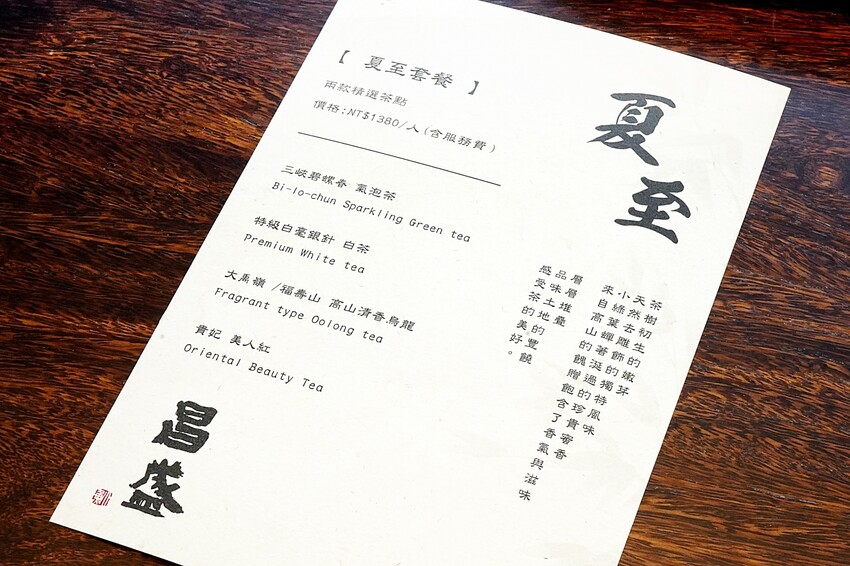 【 夏至套餐 】
兩款精選茶點
價格:NT$1380/人(含服務費)
三峽碧螺春 氣泡茶
Bi-lo-chun Sparkling Green tea
特級白毫銀針 白茶
Premium White tea
大禹嶺 /福壽山 高山清香烏龍
Fragrant type Oolong tea
貴妃 美人紅
Oriental Beauty Tea
夏至
茶樹初生的嫩芽
天然去雕飾的獨特風味
小綠葉蟬著涎過的珍貴蜜香
來自高山的餽贈飽含了香氣與滋味
層層堆疊
品味土地的豐饒
感受茶的美好。
昌盛